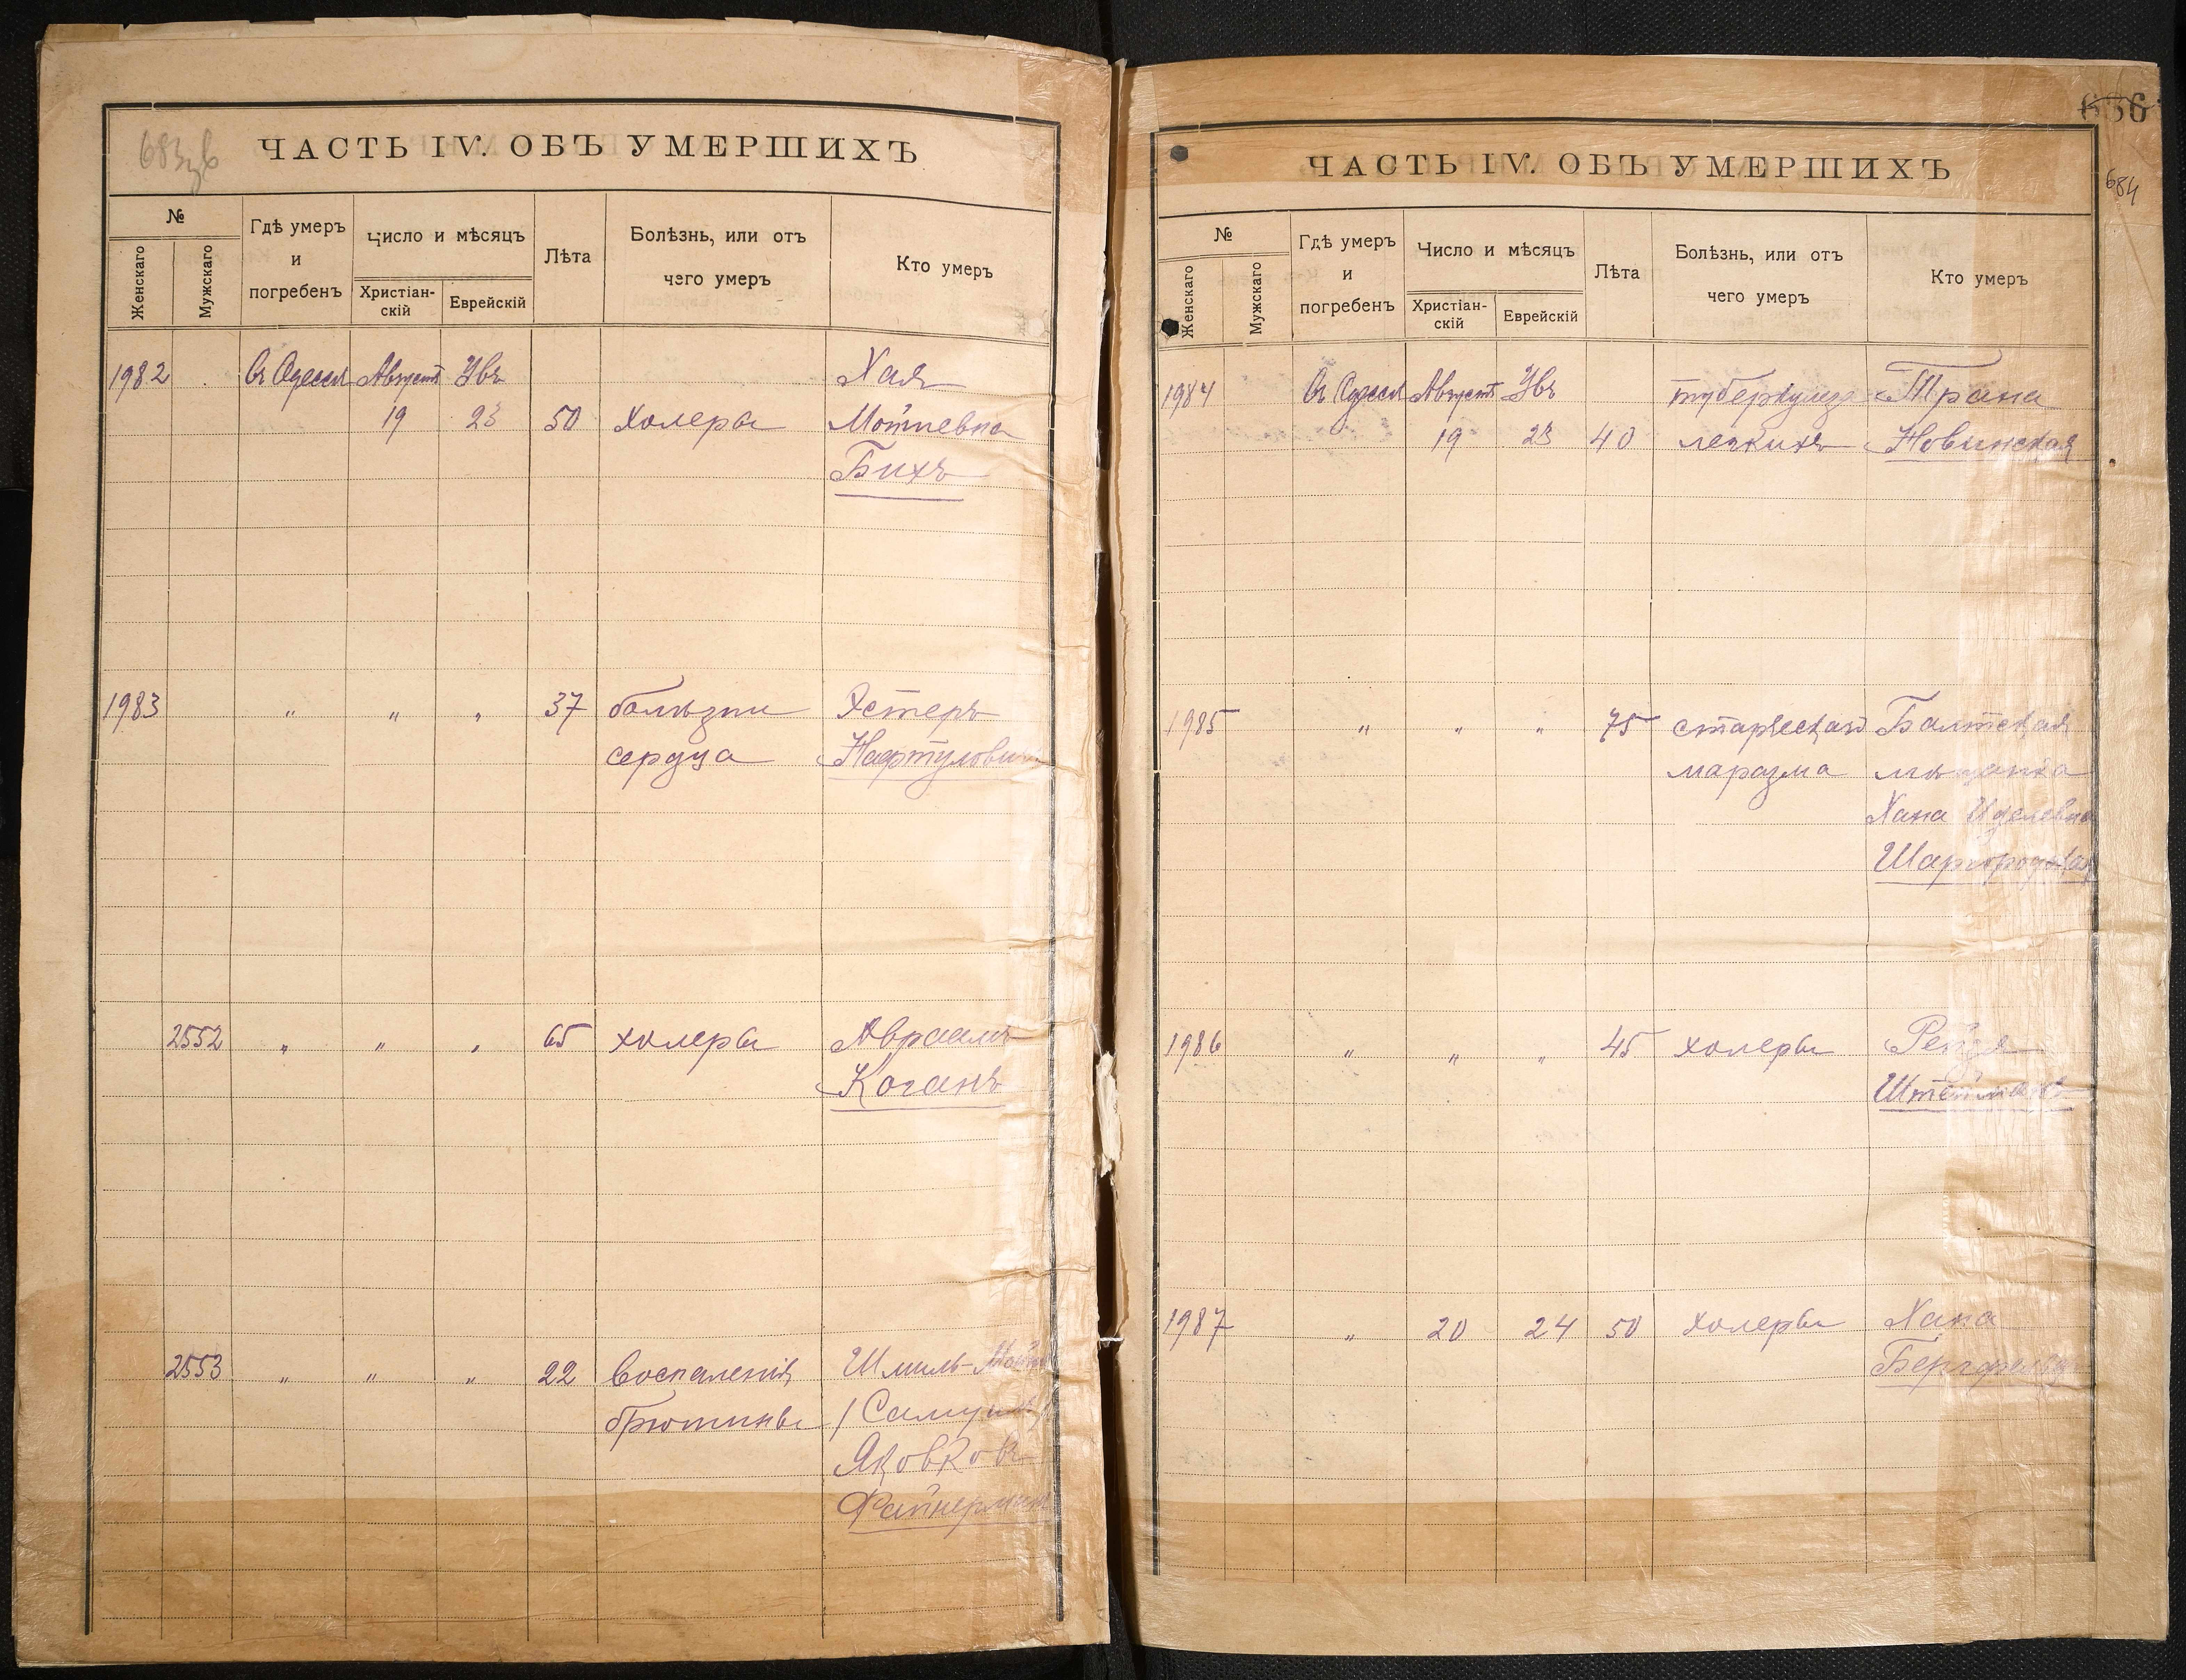 683зв
ЧАСТЬ IV. ОБЪ УМЕРШИХЪ
№
Женскаго
Мужскаго
Гдѣ умеръ
и
погребенъ
Число и мѣсяцъ
Христіан-
скій
Еврейскій
Лѣта
Болѣзнь, или отъ
чего умеръ
Кто умеръ
1982 Въ Одессѣ Августъ Увъ Хая
19 23 50 холеры Мотиевна
Бихъ
1983 " " " 37 болѣзни Эстеръ
сердца Нафтулович
2552 " " " 65 холеры Авраамъ
Коганъ
2553 " " " 22 воспаленія Шмиль-
брюшины /Самуилъ/
Яковковъ
Файнерман
ЧАСТЬ IV. ОБЪ УМЕРШИХЪ
636
684
№
Женскаго
Мужскаго
Гдѣ умеръ
и
погребенъ
Число и мѣсяцъ
Христіан-
скій
Еврейскій
Лѣта
Болѣзнь, или отъ
чего умеръ
Кто умеръ
1984 Въ Одессѣ Августъ Увъ туберкулеза
19 23 40 легкихъ Новинская
1985 " " " 75 старческаго Балтская
маразма мѣщанка
Хана Иделевна
Шаргородская
1986 " " " 45 холеры Рейзя
Штейман
1987 " 20 24 50 холеры Хана
Бергфельд